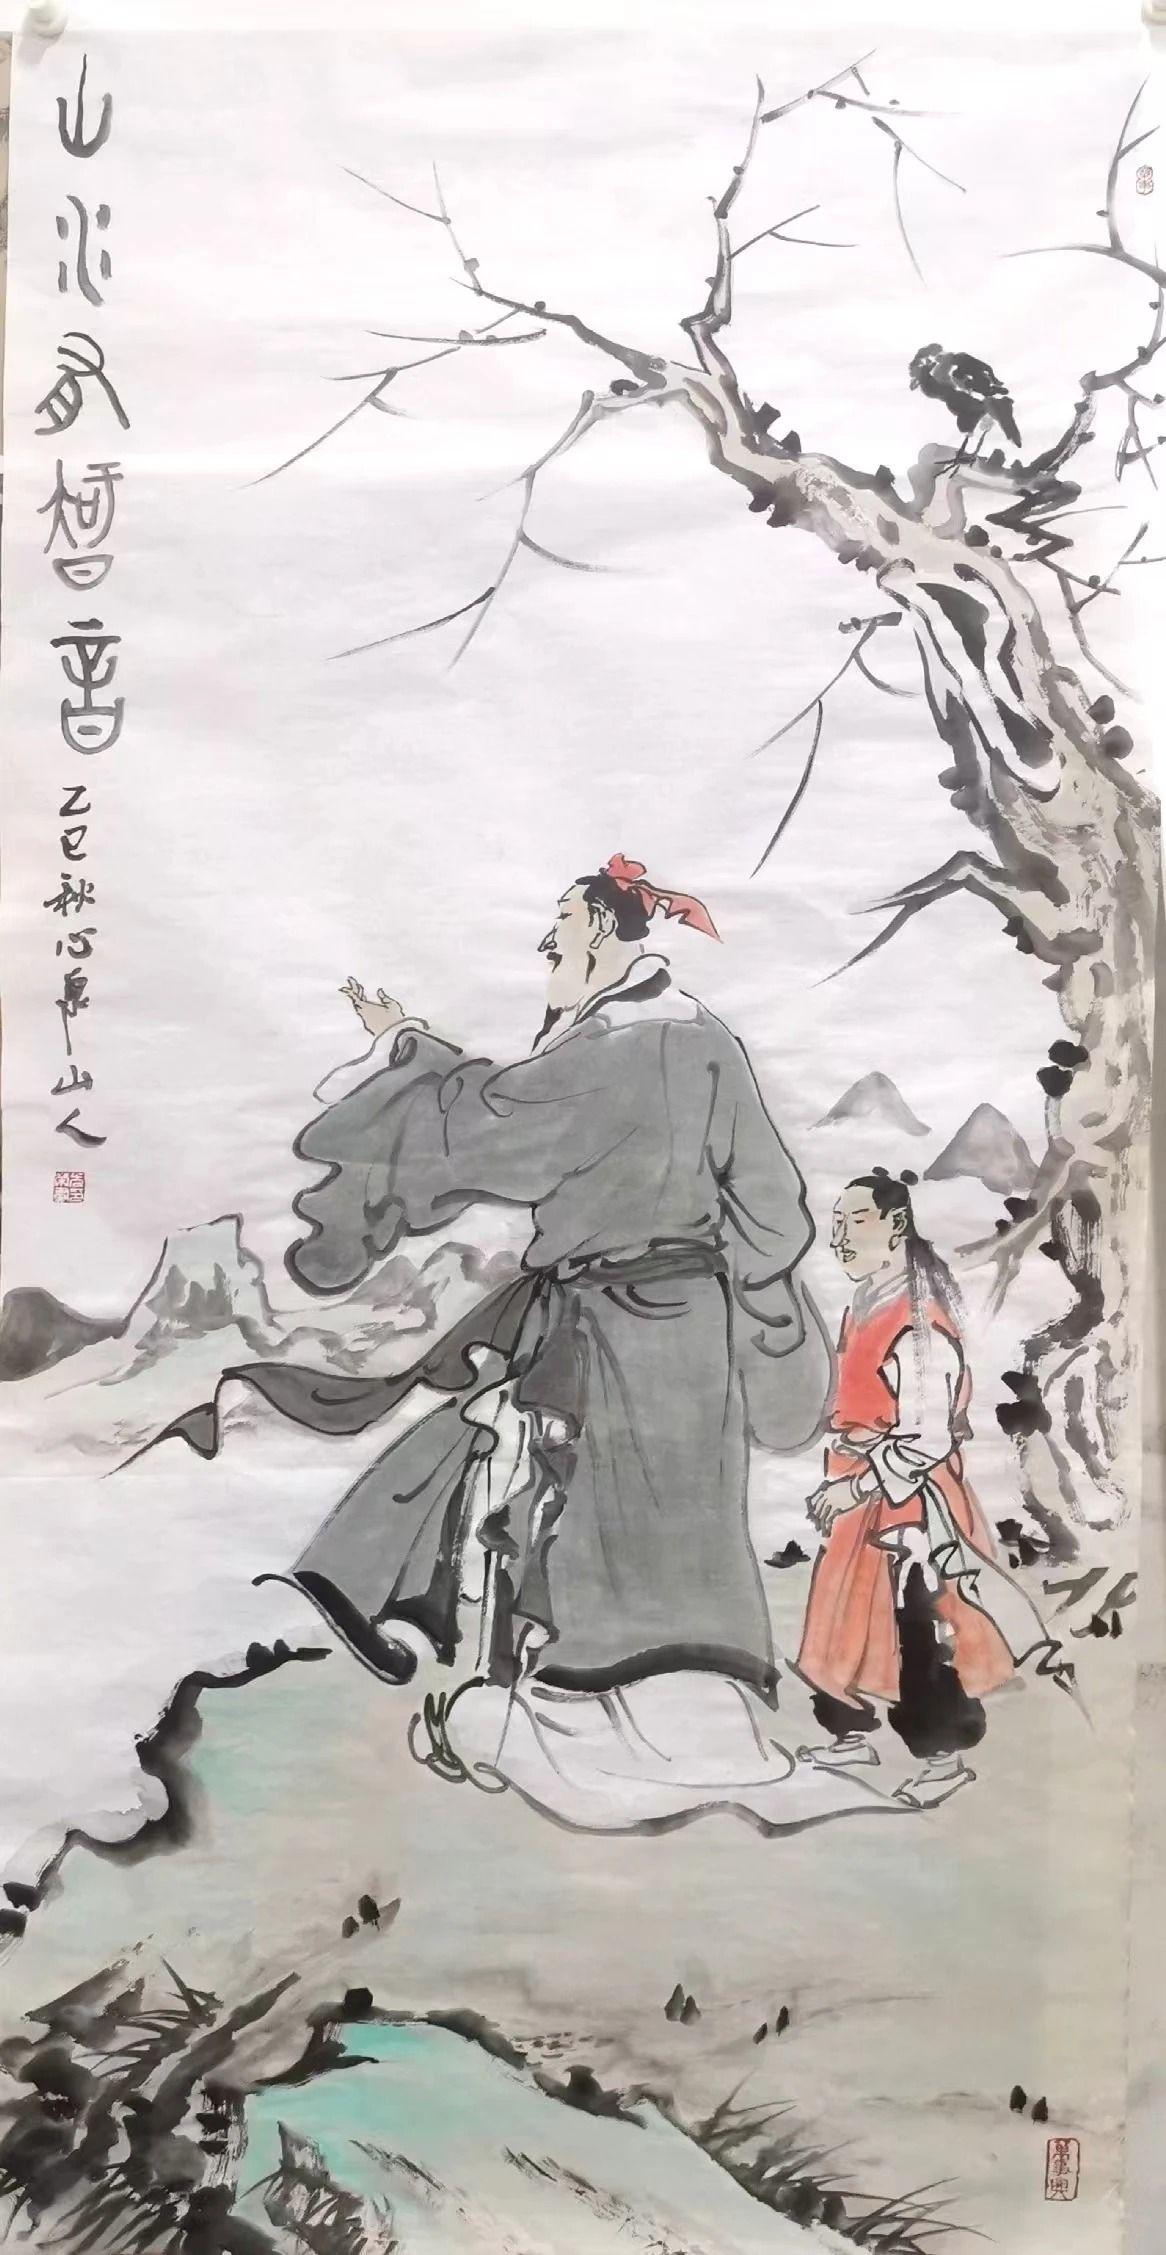 山水有清音
乙巳秋心泉山人